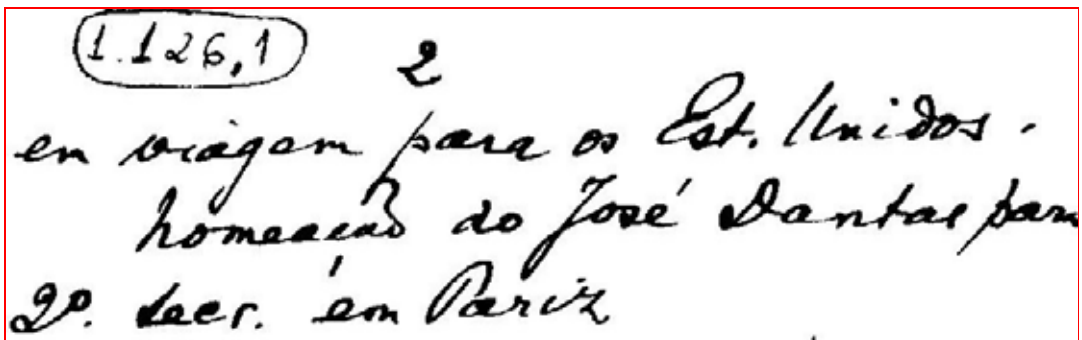 1.126,1
2
em viagem para os Est. Unidos.
Nomeação do José Dantas para
2º. Secr. em Pariz